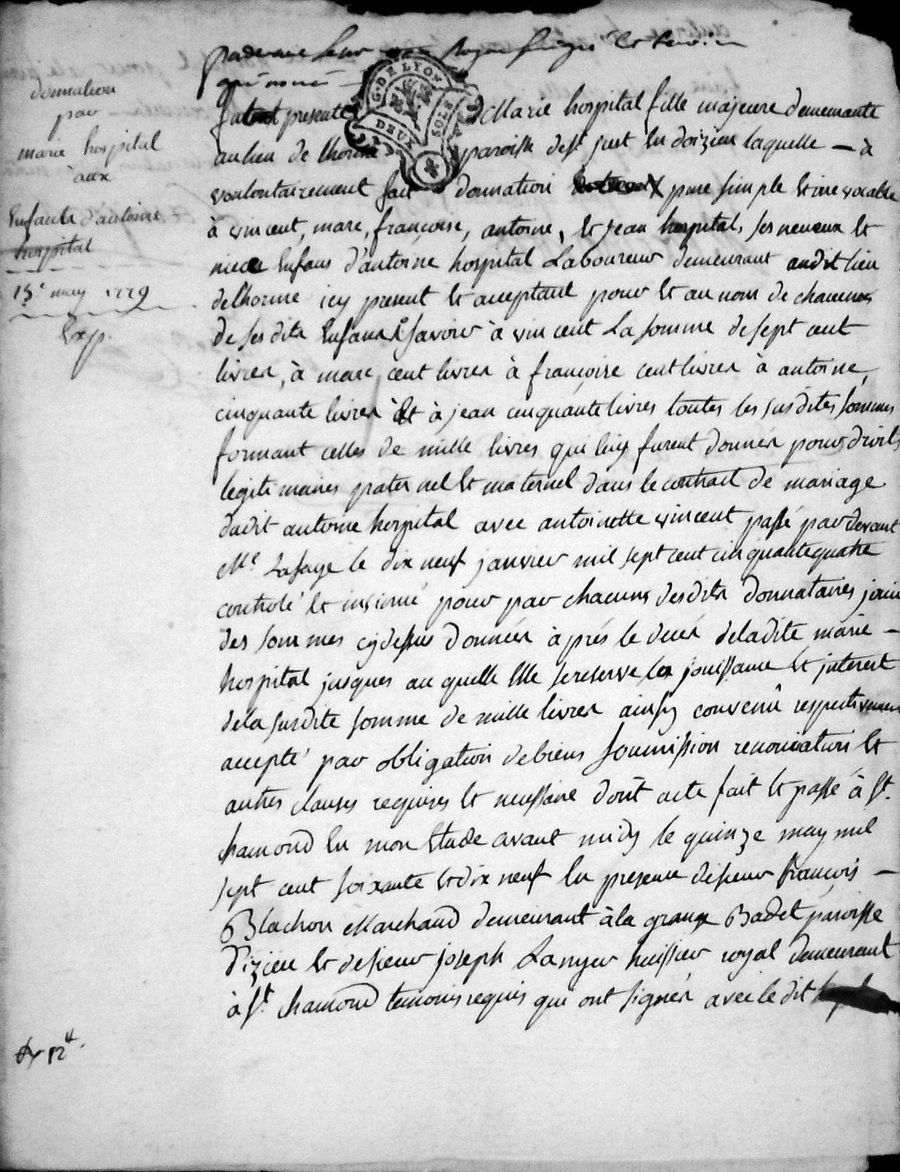 pardevant
donnation
par
marie hospital
à aux
Enfants d'antoine
hospital
15e may 1779
Exp.
G. DE LYON
DEUX SOLS
fut présente Marie hospital fille majeure demeurante
au lieu de lhorme paroisse de st just En doizieu laquelle - a
volontairement fait donnation pure simple et irrevocable
à vincent, marc, françoise, antoine, et jean hospital, ses neveux et
niece Enfans d'antoine hospital Laboureur demeurant audit lieu
delhorme icy present et acceptant pour et au nom de chacuns
de ses dits Enfans Savoir à vincent La somme de sept cent
livres, à marc, cent livres à françoise cent livres à antoine,
cinquante livres et à jean cinquante livres toutes les susdites sommes
formant celles de mille livres qui luy furent donnés pour droits
legitimaires paternel et maternel dans le contract de mariage
dudit antoine hospital avec antoinette vincent passé pardevant
Me Lafaye le dix neuf janvier mil sept cent cinquante quatre
controlé et insinué pour par chacuns desdits donnataires jouir
des sommes cydessus données à prés le decés deladite marie -
hospital jusques au quelle Elle se reserve la jouissance et interest
dela susdite somme de mille livres ainsy convenû respectivement
accepté par obligation de biens soumission renonciation et
autres clauses requises et necessaire dont acte fait et passé à St.
chamond En mon Etude avant midy le quinze may mil
sept cent soixante et dix neuf En presence de sieur françois -
Blachon Marchand demeurant à la grange Badet paroisse
d'izieu et de sieur joseph Lanyer huissier royal demeurant
à St. chamond temoins requis qui ont signés avec le dit